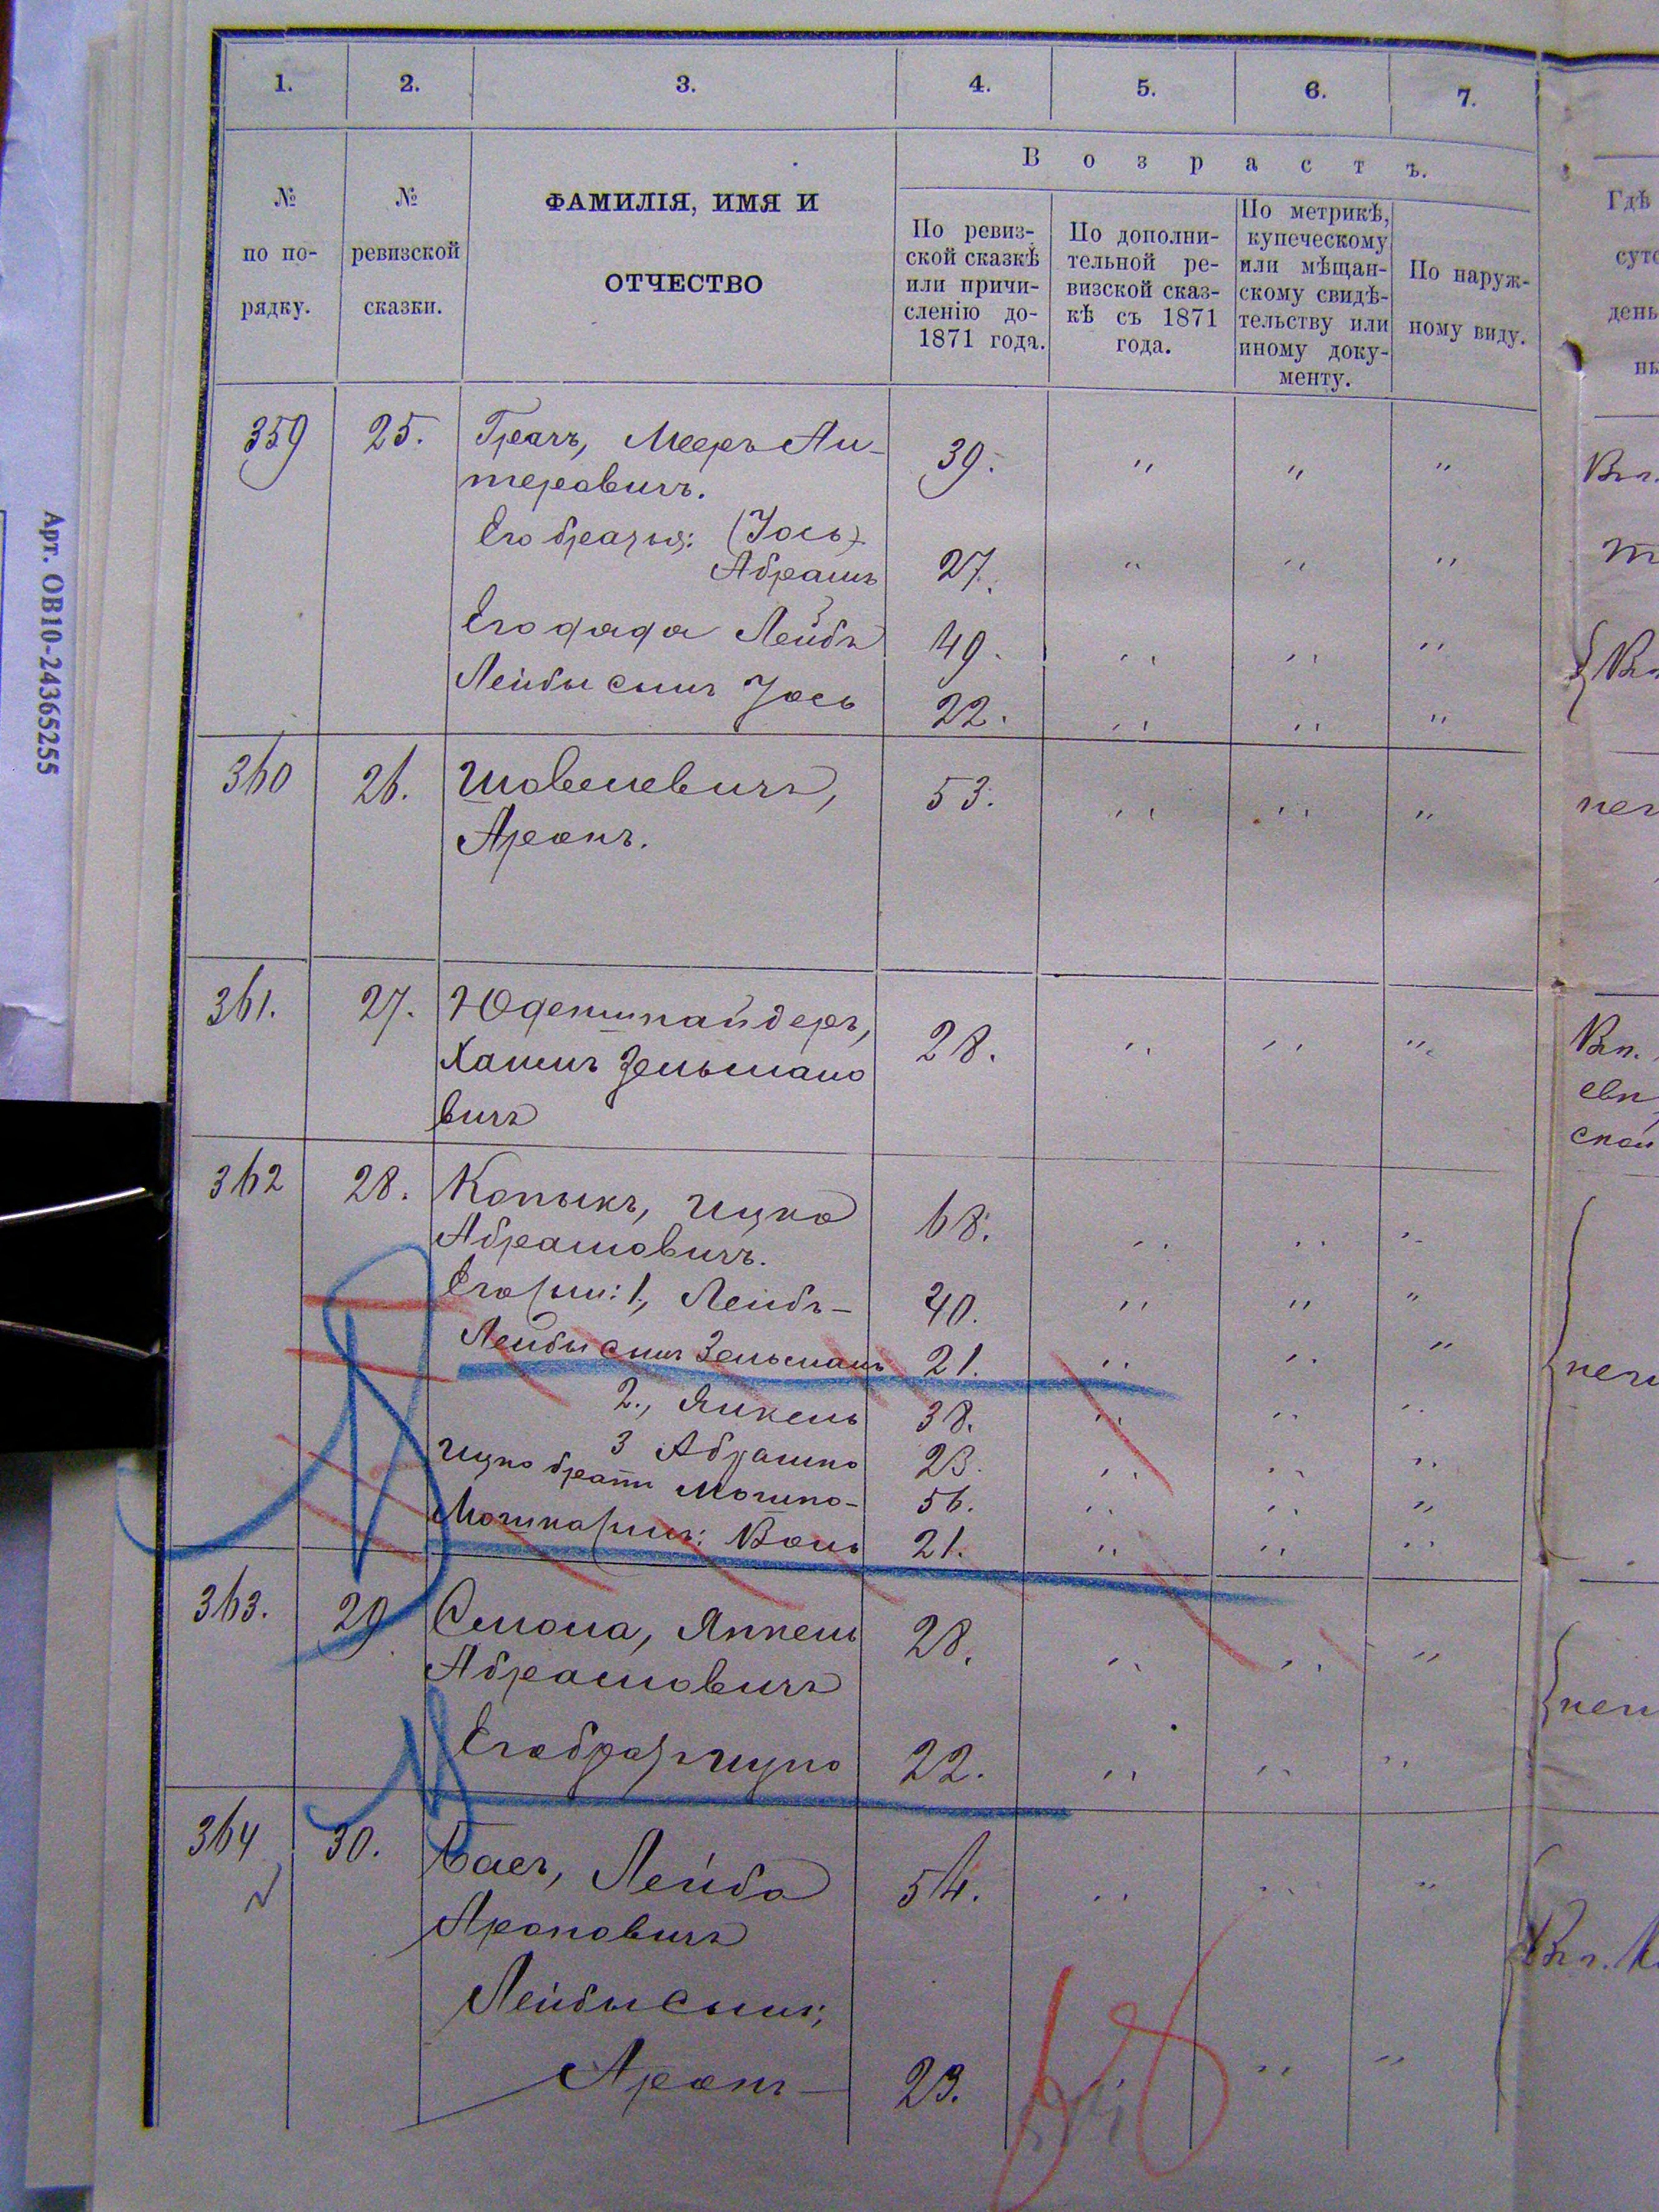 1. 2. 3. 4. 5. 6. 7.
В о з р а с т ъ.
№ по по-рядку.
№ ревизской сказки.
ФАМИЛІЯ, ИМЯ И
ОТЧЕСТВО
По ревиз-
ской сказкѣ
или причи-
сленію до-
1871 года.
По дополни-
тельной ре-
визской сказ-
кѣ съ 1871
года.
По метрикѣ,
купеческому
или мѣщан-
скому свидѣ-
тельству или
иному доку-
менту.
По наруж-
ному виду.
Гдѣ
суто
день
ны
359 25. Грачъ, Мееръ Ли- 39. " " "
теровичъ.
Его братья: (Іось)
Абрамъ 27. " " "
Его дядя Лейба 49. " " "
Лейбы сынъ Іось 22. " " "
360 26. Шовелевичъ, 53. " " "
Аронъ.
361. 27. Юденшнайдеръ, 28. " " "
Хаимъ Зельмано
вичъ
362 28. Копыкъ, Ицко 68. " " "
Абрамовичъ.
Его сын: 1, Лейба- 40. " " "
Лейбы сынъ Зельманъ 21. " " "
2., Янкель 38. " " "
3 Абрамко 23. " " "
Ицко братъ Мошко- 56. " " "
Мошка сынъ: Воль 21. " " "
363. 29 Смола, Янкель 28. " " "
Абрамовичъ
Его братъ Ицко 22. " " "
364 30. Баег, Лейба 54. " " "
Ароновичъ
Лейбы сынъ;
Аронъ- 23. " "
Арт. ОВ10-24365255